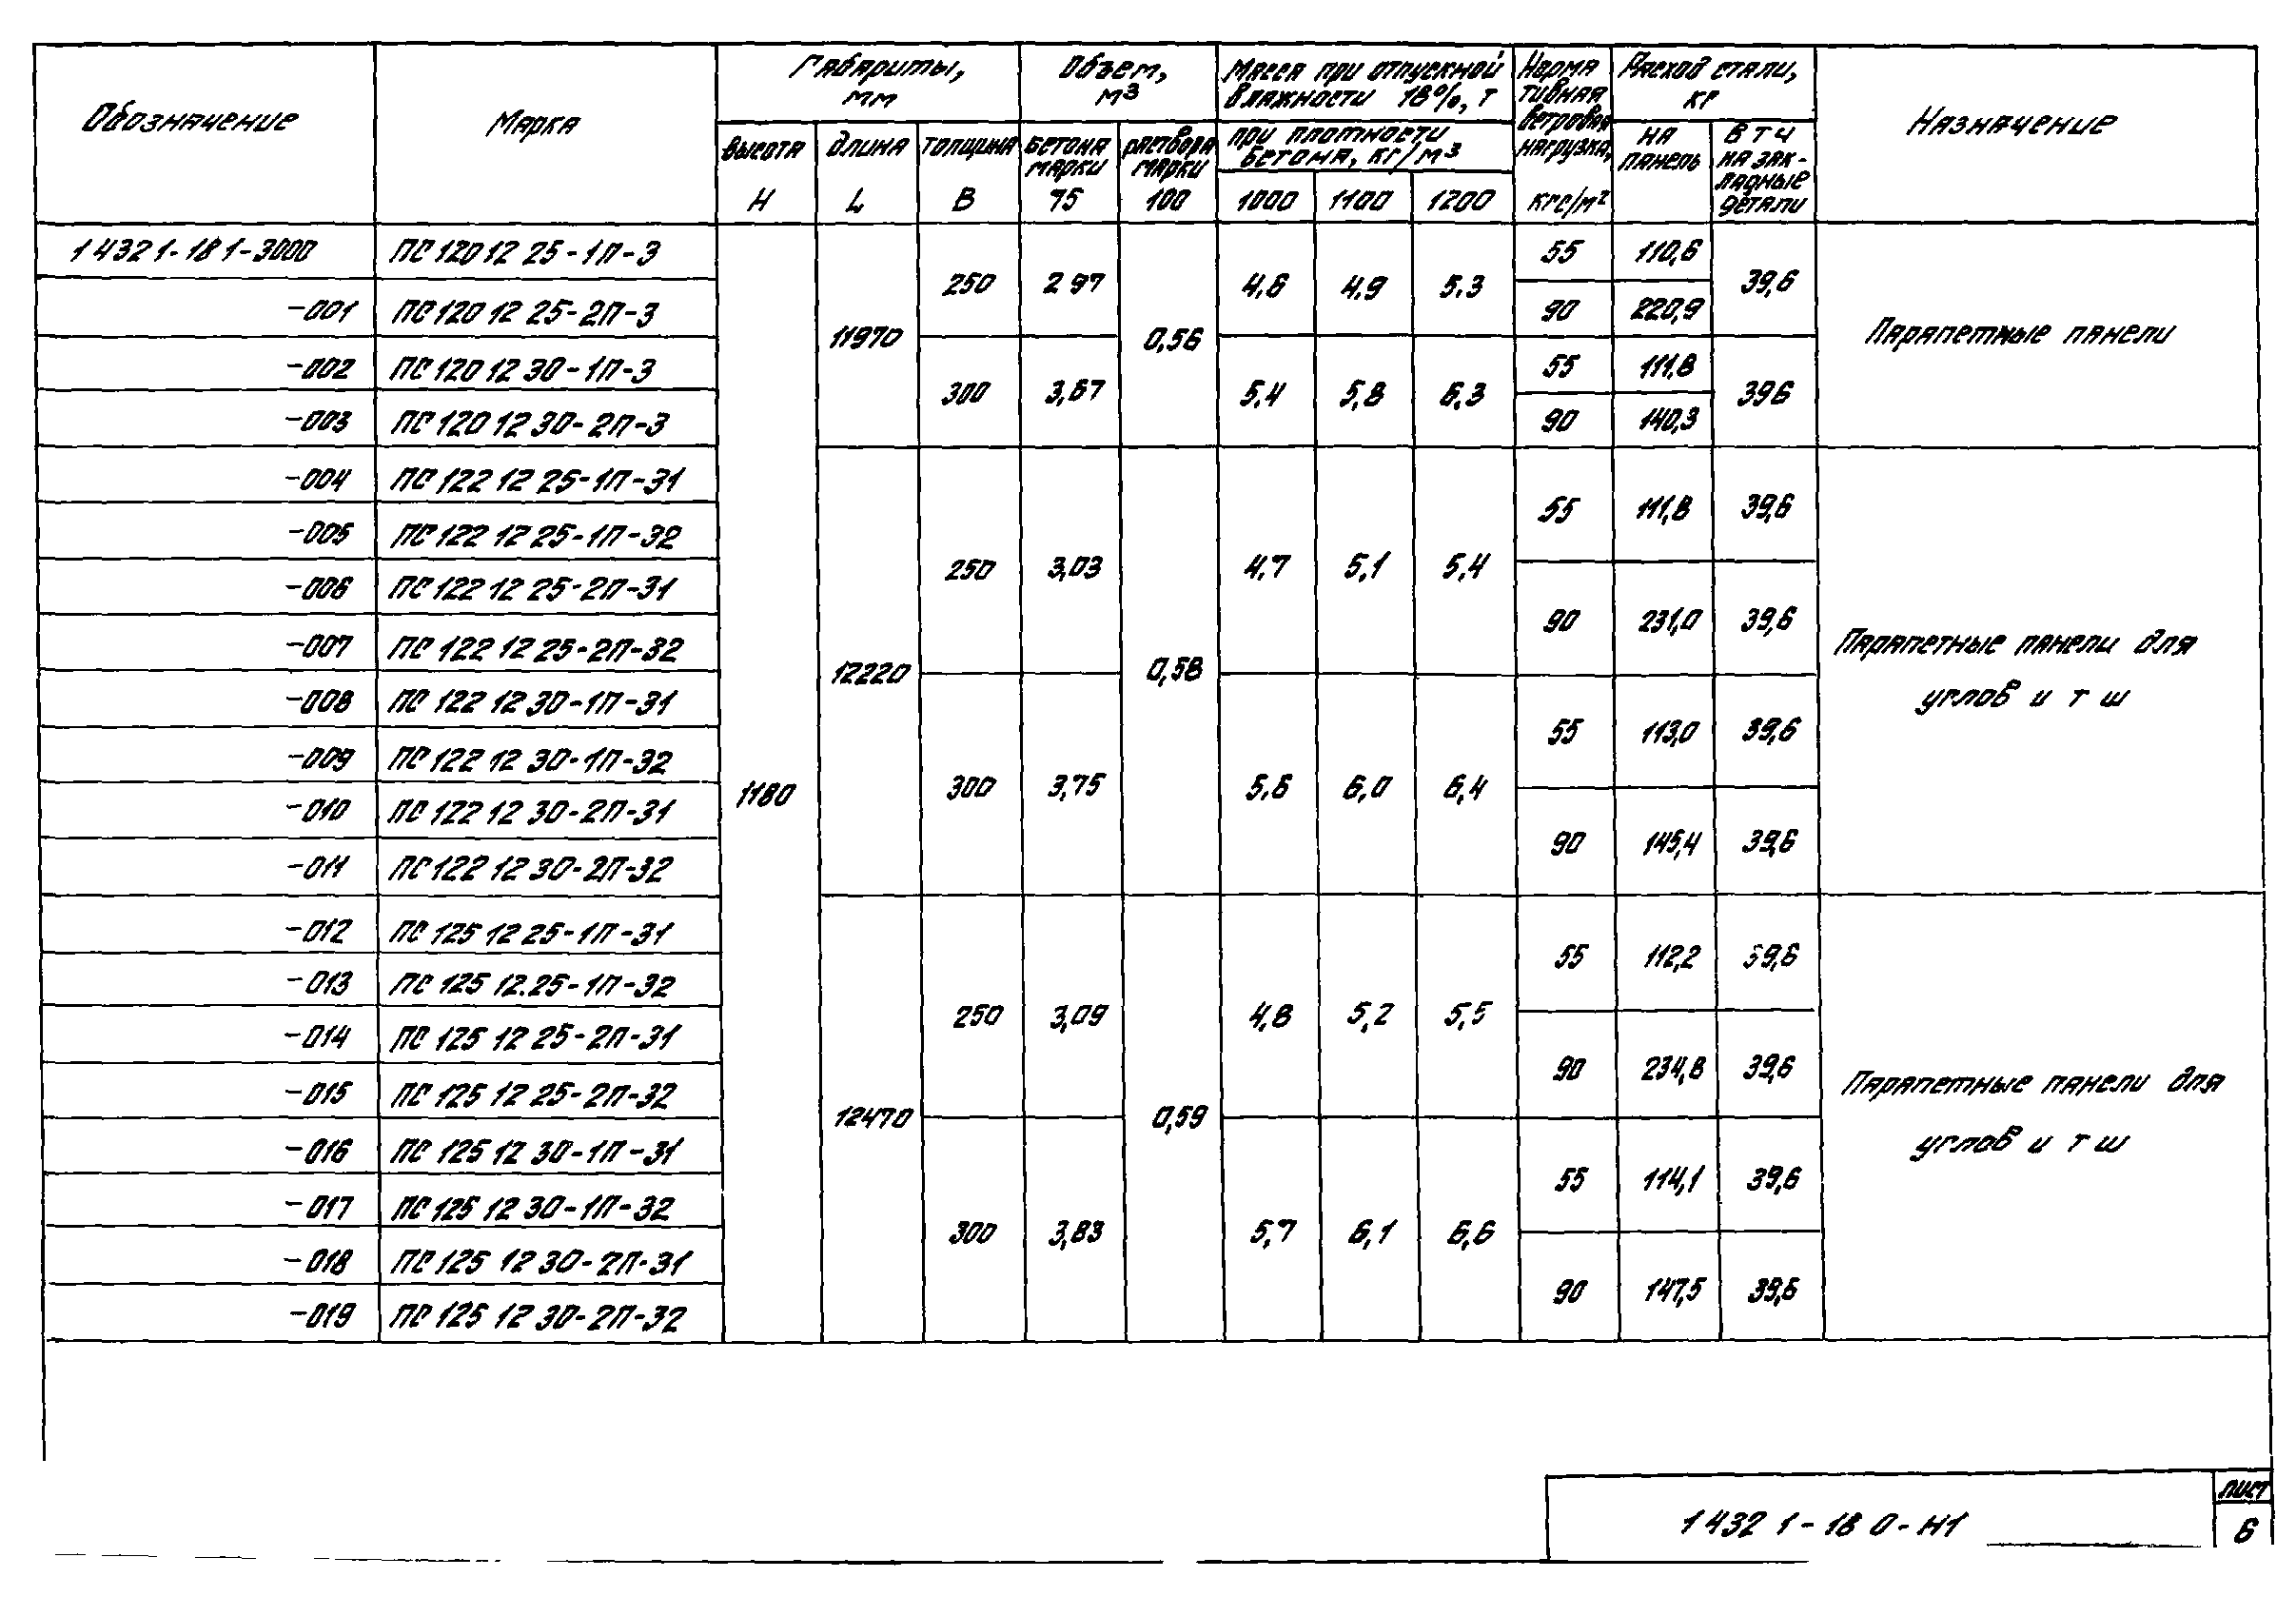 Обозначение
Марка
Габариты, мм
высота H
длина L
толщина B
Объем, м³
бетона марки 75
раствора марки 100
Масса при отпускной влажности 18%, т
при плотности бетона, кг/м³
1000 1100 1200
Норма
тивная
ветровая
нагрузка,
кгс/м²
Расход стали, кг
на панель
в т ч на зак-
ладные
детали
Назначение
1 432 1-18 1-3000 ПС 120 12 25-1П-3 55 110,6
250 2 97 4,6 4,9 5.3 39,6
-001 ПС 120 12 25-2П-3 90 220,9
11970 0,56 Парапетные панели
-002 ПС 120 12 30-1П-3 55 111,8
300 3,67 5,4 5,8 6,3 39 6
-003 ПС 120 12 30-2П-3 90 140,3
-004 ПС 122 12 25-1П-31
55 111,8 39,6
-005 ПС 122 12 25-1П-32
250 3,03 4,7 5,1 5,4
-006 ПС 122 12 25-2П-31
90 231,0 39,6
-007 ПС 122 12 25-2П-32
12220 0,58 Парапетные панели для
углов и т ш
-008 ПС 122 12 30-1П-31
55 113,0 39,6
-009 ПС 122 12 30-1П-32
1180 300 3,75 5,6 6,0 6,4
-010 ПС 122 12 30-2П-31
90 145,4 39,6
-011 ПС 122 12 30-2П-32
-012 ПС 125 12 25-1П-31
55 112,2 39,6
-013 ПС 125 12.25-1П-32
250 3,09 4,8 5,2 5,5
-014 ПС 125 12 25-2П-31
90 234,8 39,6
-015 ПС 125 12 25-2П-32
12470 0,59 Парапетные панели для
углов и т ш
-016 ПС 125 12 30-1П-31
55 114,1 39,6
-017 ПС 125 12 30-1П-32
300 3,83 5,7 6,1 6,6
-018 ПС 125 12 30-2П-31
90 147,5 39,6
-019 ПС 125 12 30-2П-32
1 432 1-18 0-Н1
лист
6